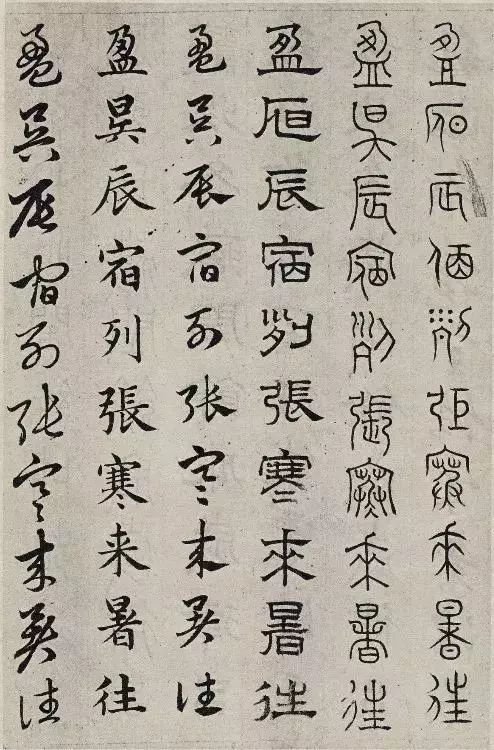 盈昃辰宿列張寒來暑往
盈昃辰宿列張寒來暑往
盈昃辰宿列張寒来暑往
盈昃辰宿列張寒来暑往
盈昃辰宿列張寒来暑往
盈昃辰宿列張寒来暑往